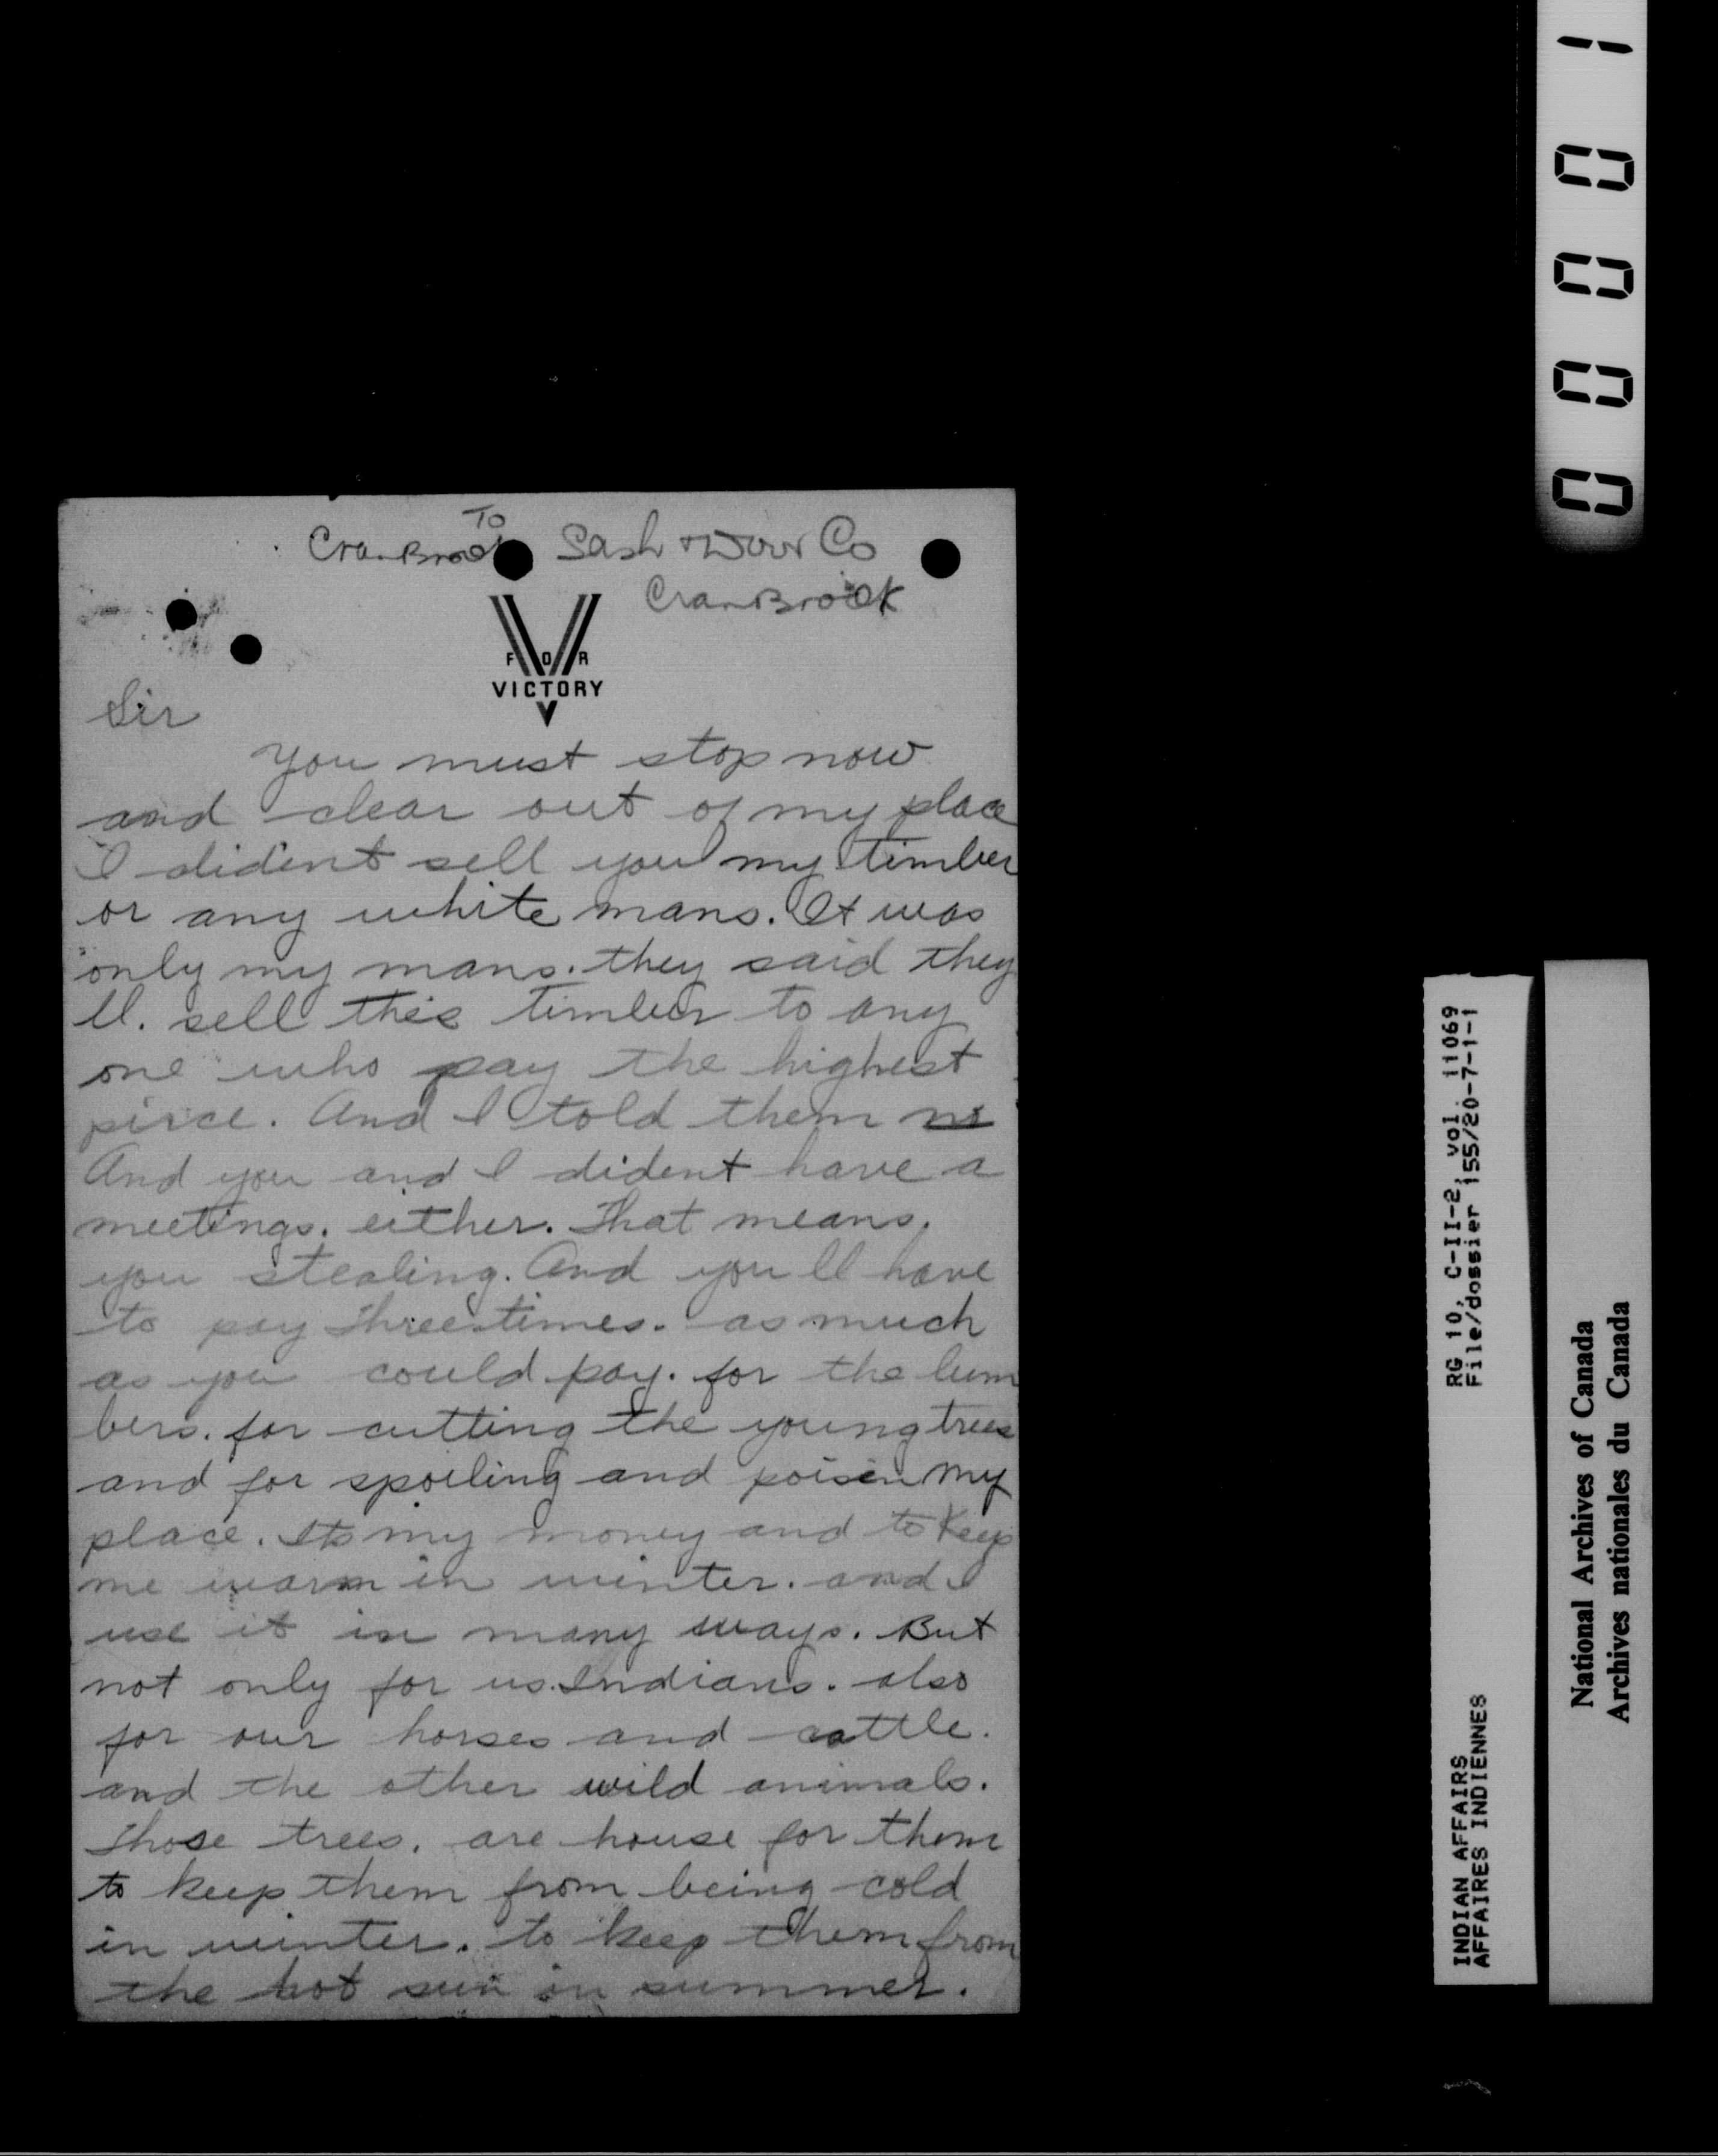 To
CranBrook Sash & Door Co
CranBrook
V
FOR
VICTORY
Sir
You must stop now
and clear out of my place
I dident sell you my timber
or any white mans. It was
only my mans. they said they
ll. sell this timber to any
one who pay the highest
pirce. And I told them no
And you and I dident have a
meetings. either. That means.
you stealing. And you ll have
to pay three times. as much
as you could pay. for the lum
bers. for cutting the young trees
and for spoiling and poisin my
place. Its my money and to keep
me warm in winter. and I
use it in many ways. But
not only for us. Indians. also
for our horses and cattle.
and the other wild animals.
Those trees. are house for them
to keep them from being cold
in winter. to keep them from
the hot sun in summer.
00001
RG 10, C-II-2, vol. 11069
File/dossier 155/20-7-1-1
INDIAN AFFAIRS
AFFAIRES INDIENNES
National Archives of Canada
Archives nationales du Canada